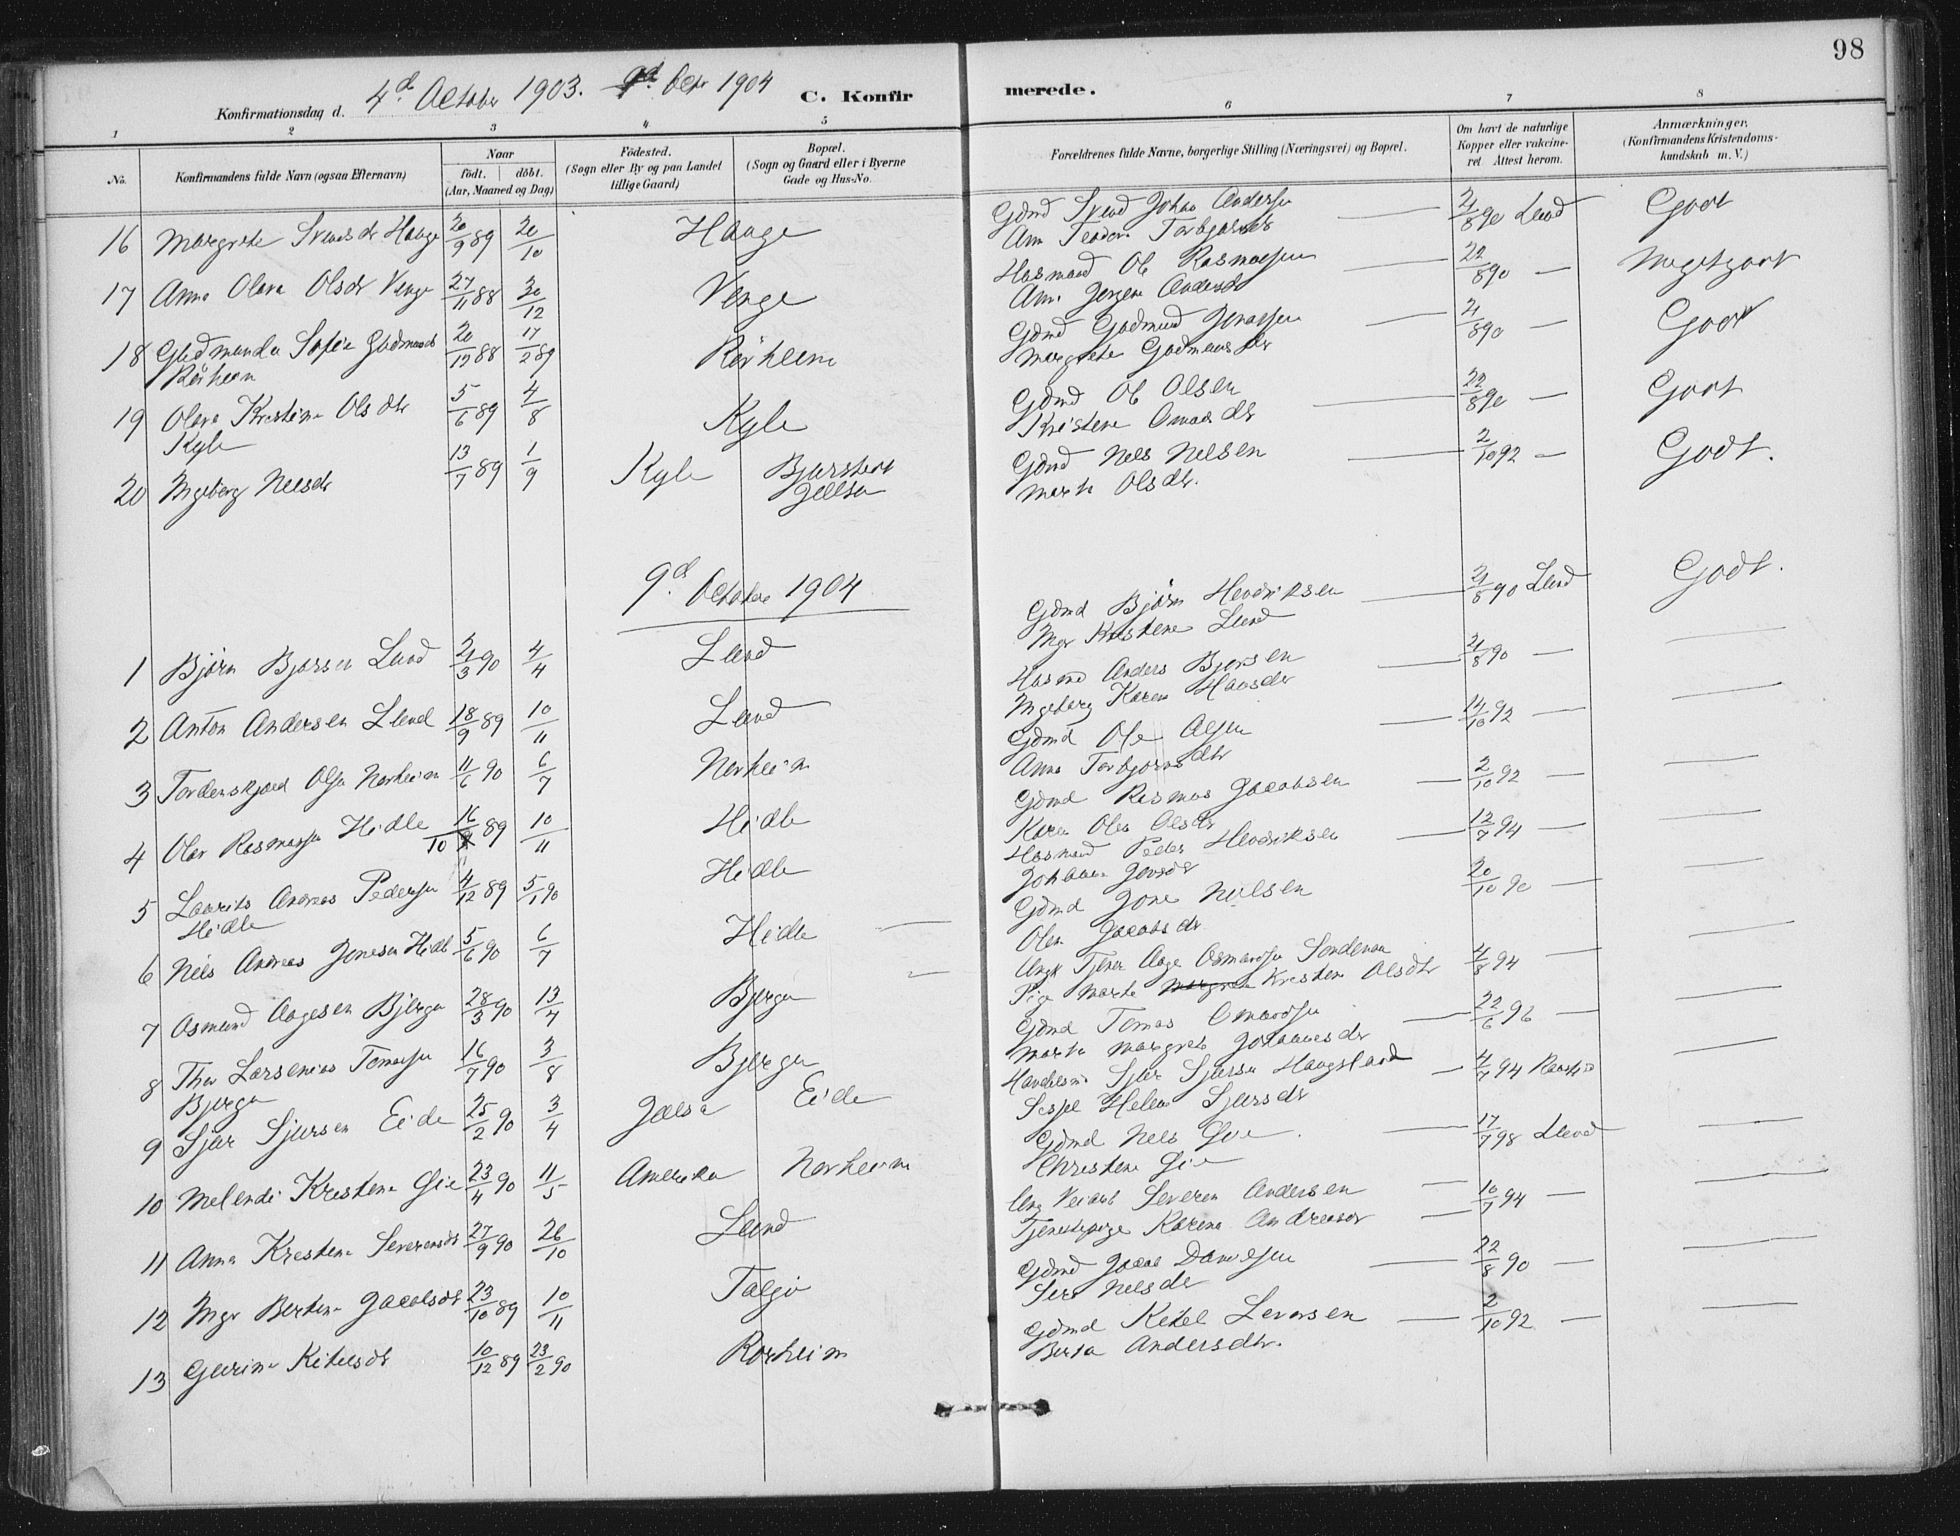 98
Konfirmationsdag d. 4d. October 1903. 9d. Octr 1904
C. Konfirmerede.
1 2 3 4 5 6 7 8
No.
Konfirmandens fulde Navn (ogsaa Efternavn)
Naar
födt. döbt.
(Aar, Maaned og Dag)
Födested.
(Sogn eller By og paa Landet
tillige Gaard)
Bopæl.
(Sogn og Gaard eller i Byerne
Gade og Hus-No.
Forældrenes fulde Navne, borgerlige Stilling (Næringsvei) og Bopæl.
Om havt de naturlige
Kopper eller vakcine-
ret Attest herom.
Anmærkninger.
(Konfirmandens Kristendoms-
kundskab m. V.)
16 Margrete Svendsdr Hauge 20/9 89 20/10 Hauge Gdmd Svend Johan Andersen 21/8 90 Lund Godt
Ane Teodora Torbjørnsdr
17 Anna Olava Olsdr Venge 27/11 88 30/12 Venge Husmand Ole Rasmussen 22/8 90 — Megetgodt
Ane Jørgine Andersdr
18 Gudmunda Sofie Gudmunds 20/12 88 17/2 89 Rørheim Gdmd Gudmund Jonassen 21/8 90 — Godt
Rørheim Margrete Gudmundsdr
19 Olava Kristine Olsdtr 5/6 89 4/8 Kyle Gdmd Ole Olsen 22/8 90 — Godt
Kyle Kristine Omundsdtr
20 Ingeborg Nilsdr 13/7 89 1/9 Kyle Gdmd Nils Nilsen 2/10 92 — Godt.
Marta Olsdtr.
9d. October 1904
1 Bjørn Bjørsen Lund 21/3 90 4/4 Lund Gdmd Bjørn Hendriksen 21/8 90 Lund Godt.
Ingr Kristine Lund
2 Anton Andersen Lund 18/9 89 10/11 Lund Husmd Anders Bjørsen 21/8 90 —
Ingeborg Karen Hansdr
3 Tordenskjold Olsen Norheim 11/6 90 6/7 Norheim Gdmd Ole Olsen 14/10 92 —
Anna Torbjørnsdtr
4 Olav Rasmussen Hidle 16/10 89 10/11 Hidle Gdmd Rasmus Jacobsen 2/10 92 —
Karen Olea Olsdr
5 Laurits Andreas Pedersen 4/12 89 5/1 90 Hidle Husmand Peder Hendriksen 12/7 94 —
Hidle Johanne Jonsdr
6 Nils Andreas Jonesen Hidle 5/6 90 6/7 Hidle — Gdmd Jone Nilsen 20/10 90 —
Olea Jacobsdr
7 Osmund Aagesen Bjerga 28/3 90 13/4 Bjerga Ungk Tjener Aage Osmundsen Søndenaa 4/8 94 —
Pige Marta Kristine Olsdtr
8 Thor Larsenius Tomassen 16/7 90 3/8 Bjerga Gdmd Tomas Omundsen 22/6 96 —
Bjerga Marta Margrete Johannesdr
9 Sjur Sjursen Eide 25/2 90 3/4 Jælsa Eide Sjur Sjursen Haugsland 4/7 94
Helene Sjursdr
10 Melendi Kristine Gie 23/4 90 11/5 Amerika Norheim Gdmd Nils Gie 17/7 98 Lund
Christine Gie
11 Anna Kristine Severensdr 27/9 90 26/10 Lund Severin Andersen 10/7 94 —
Tjenestepige Karina Andreasdr
12 Ingr Bertine Jacobsdtr 23/10 89 10/11 Talgø Gdmd Jacob Danielsen 22/8 90 —
Siri Nilsdr
13 Gurine Kitelsdr 10/12 89 23/2 90 Rørheim Gdmd Kitel Levorsen 2/10 92. —
Berta Andersdtr.